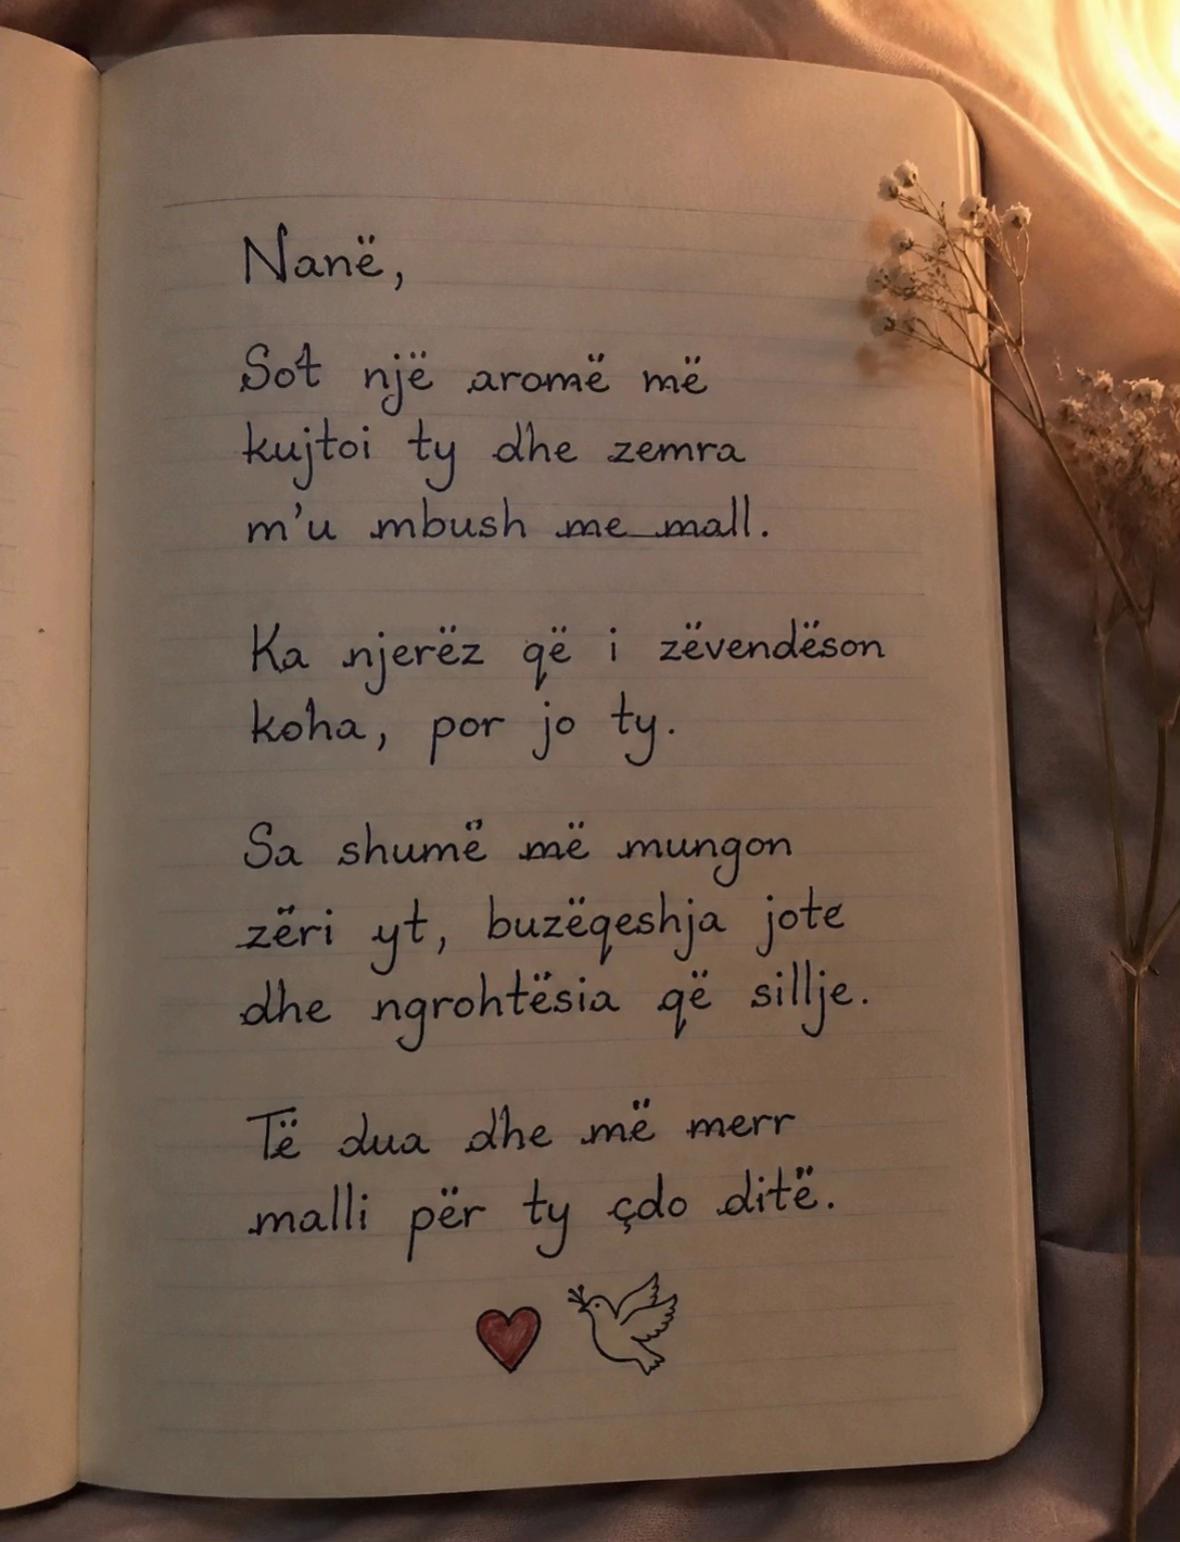 Nanë,
Sot një aromë më
kujtoi ty dhe zemra
m'u mbush me mall.
Ka njerëz që i zëvendëson
koha, por jo ty.
Sa shumë më mungon
zëri yt, buzëqeshja jote
dhe ngrohtësia që sillje.
Të dua dhe më merr
malli për ty çdo ditë.